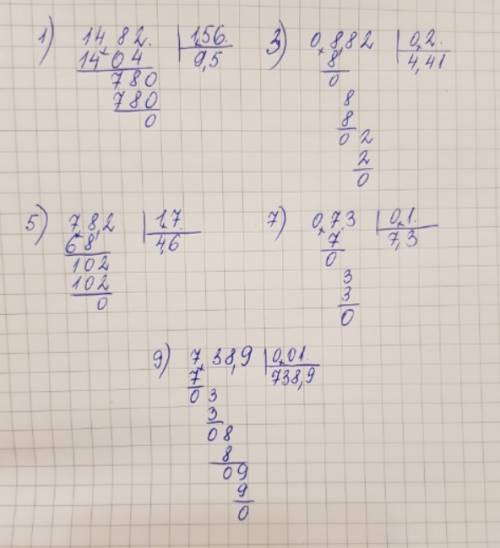 1) 14,82. | 1,56.
14 04 | 9,5
780
780
0
3) 0,8,82 | 0,2.
8 | 4,41
0
8
8
0 2
2
0
5) 7,8,2 | 1,7.
6 8 | 4,6
102
102
0
7) 0,7,3 | 0,1.
7 | 7,3
0
3
3
0
9) 7,38,9 | 0,01
7 | 738,9
0 3
3
08
8
09
9
0